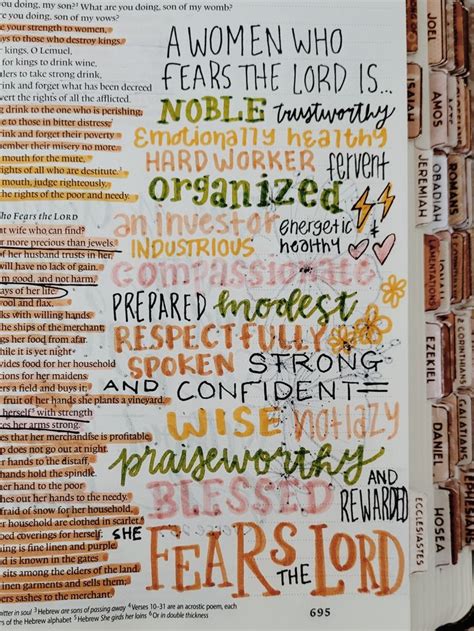 you doing, my son?¹ What are you doing, son of my womb?
you doing, son of my vows?
your strength to women,
ways to those who destroy kings.
kings, O Lemuel,
for kings to drink wine,
rulers to take strong drink,
drink and forget what has been decreed
vert the rights of all the afflicted.
ng drink to the one who is perishing,
e to those in bitter distress;
rink and forget their poverty
member their misery no more.
mouth for the mute,
rights of all who are destitute.
mouth, judge righteously,
the rights of the poor and needy.
Who Fears the LORD
nt wife who can find?
r more precious than jewels.
of her husband trusts in her,
will have no lack of gain.
m good, and not harm,
ays of her life.
ool and flax,
ks with willing hands.
the ships of the merchant;
ngs her food from afar.
while it is yet night
vides food for her household
ions for her maidens.
ers a field and buys it;
fruit of her hands she plants a vineyard.
herself³ with strength
es her arms strong.
es that her merchandise is profitable.
p does not go out at night.
r hands to the distaff,
hands hold the spindle.
her hand to the poor
hes out her hands to the needy.
fraid of snow for her household,
er household are clothed in scarlet.
bed coverings for herself;
hing is fine linen and purple.
nd is known in the gates
sits among the elders of the land.
linen garments and sells them;
ers sashes to the merchant.
bitter in soul ³ Hebrew are sons of passing away ⁴ Verses 10–31 are an acrostic poem, each
ers of the Hebrew alphabet ⁵ Hebrew She girds her loins ⁶ Or in double thickness
695
A WOMEN WHO
FEARS THE LORD IS...
NOBLE trustworthy
Emotionally healthy
HARD WORKER fervent
organized
an investor energetic &
INDUSTRIOUS healthy
compassionate
PREPARED modest
RESPECTFULLY
SPOKEN STRONG
AND CONFIDENT
WISE not lazy
praiseworthy
BLESSED AND
REWARDED
SHE
FEARS THE LORD
JOEL
AMOS
OBADIAH
ISAIAH
JEREMIAH
LAMENTATIONS
EZEKIEL
DANIEL
HOSEA
ECCLESIASTES
ACTS
ROMANS
CORINTHIANS
GALATIANS